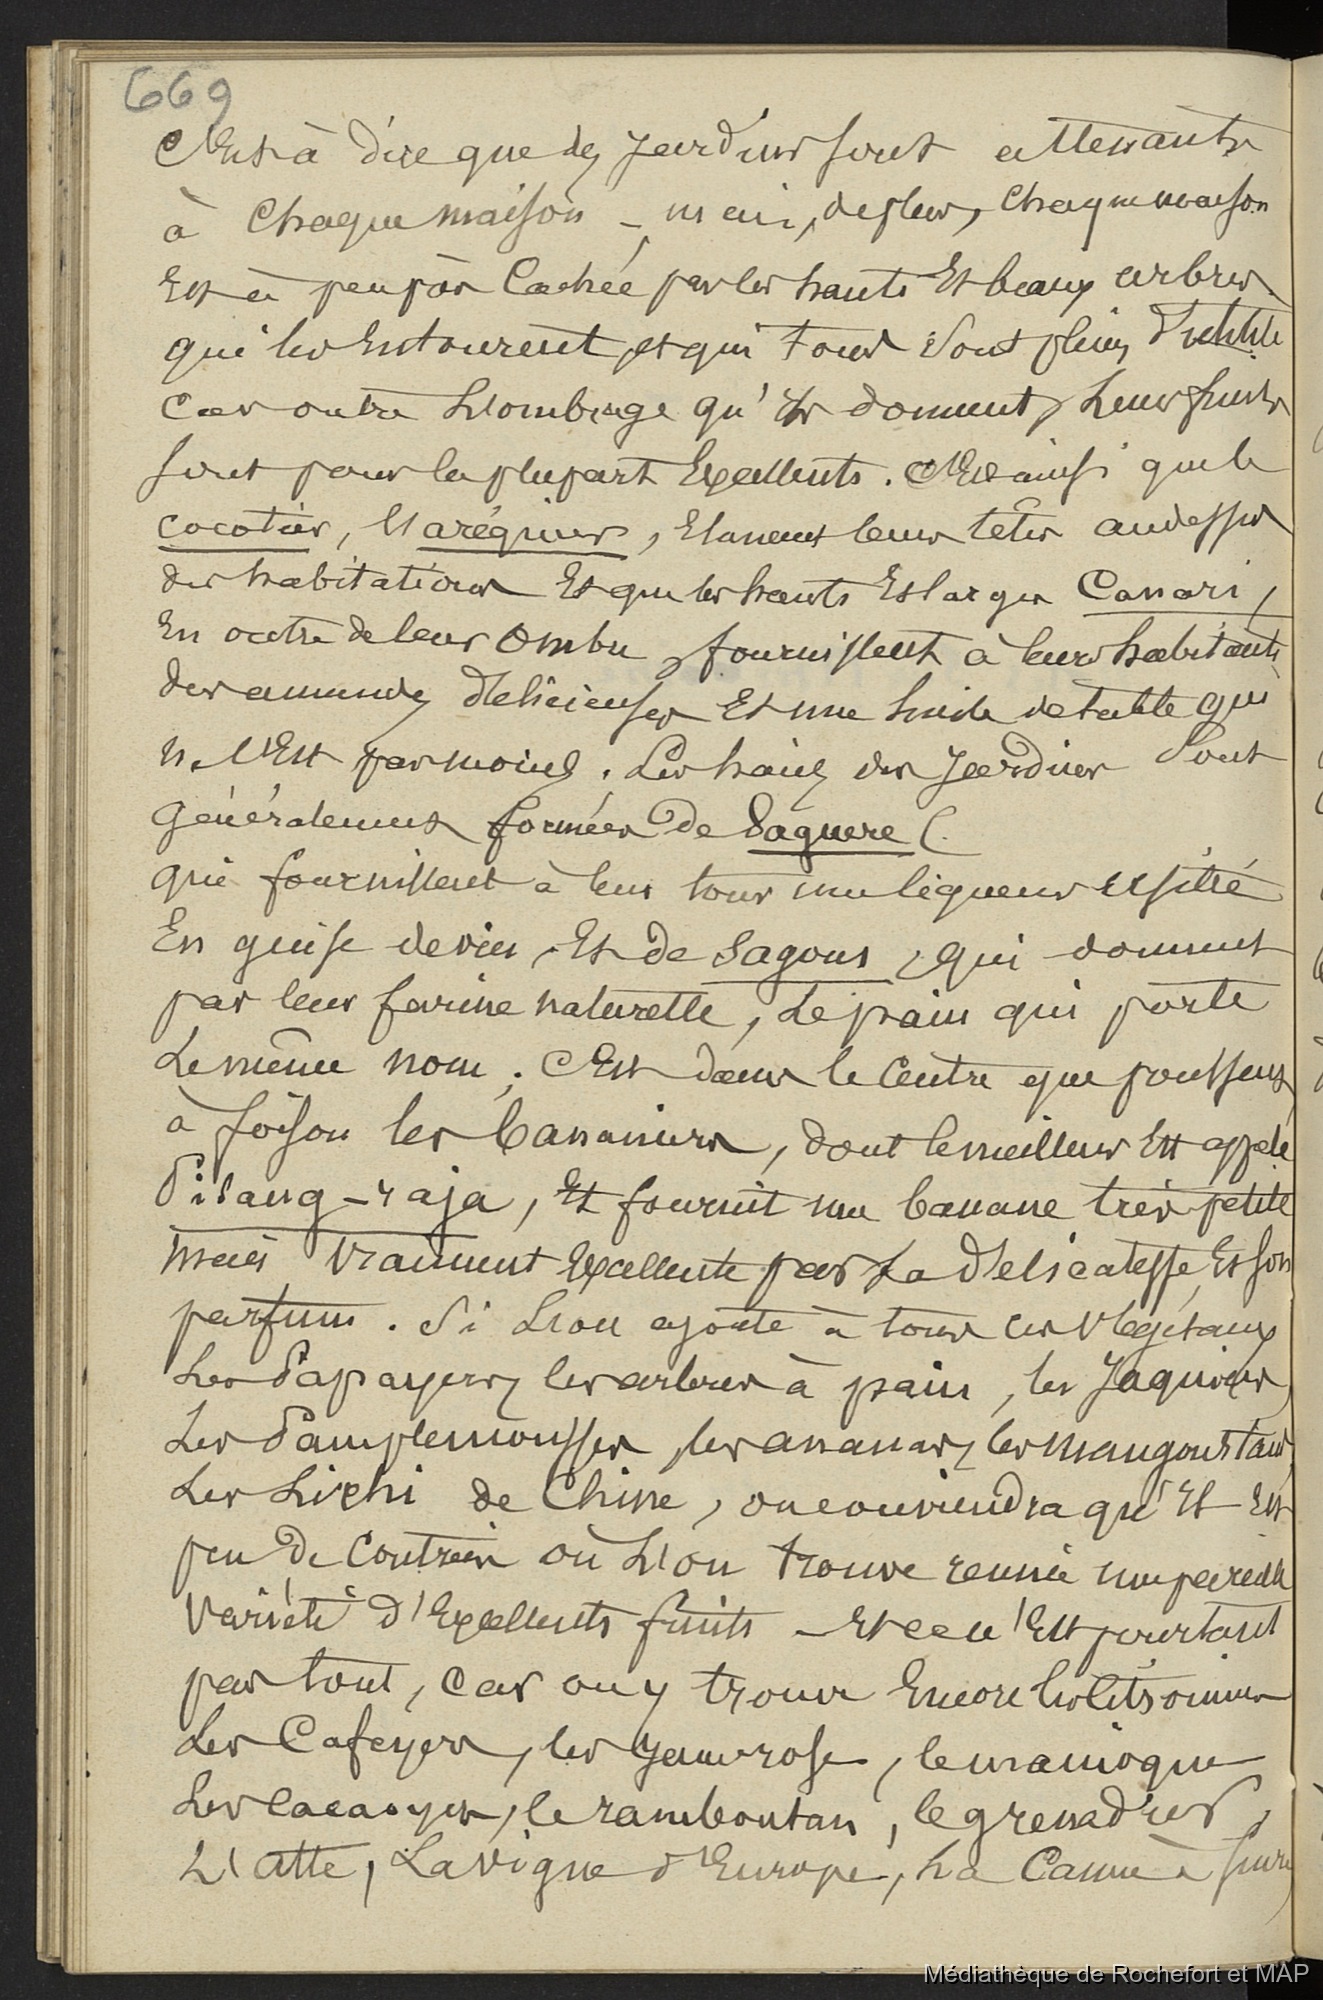 669
C'est à dire que des Jardins sont attenants
à Chaque maison – mais, de plus, Chaque maison
Est à peu près Cachée par les hauts Et beaux arbres
qui les Entourent, et qui tous sont pleins d'utilité
Car outre L'ombrage qu'ils donnent, Leurs fruits
sont pour la plupart Excellents. C'Est ainsi que le
cocotier, l'aréquier, Elancent leurs têtes au dessus
des habitations Et que les hauts Et larges Canari,
En outre de leur Ombre, fournissent à leurs habitants
des amandes délicieuses Et une huile de table qui
ne l'Est pas moins. Les haies des Jardins sont
généralement formées de Saguere (.
qui fournissent à leur tour une liqueur usitée
En guise de vin, Et de Sagous, qui donnent
par leur farine naturelle, Le pain qui porte
Le même nom. C'Est dans le Centre que poussent
à foison les bananiers, dont le meilleur Est appelé
Pisang-raja, Et fournit une banane très petite
mais vraiment Excellente par La délicatesse Et son
parfum. Si L'on ajoute à tous ces végétaux
Les Papayers, les arbres à pain, les Jaquiers
Les Pamplemousses, les ananas, les mangoustans
Les Litchi de Chine, on conviendra qu'il Est
peu de Contrées où L'on trouve réunie une pareille
Variété d'Excellents fruits – et ce n'Est pourtant
pas tout, car on y trouve Encore les
Les Cafeyers, les Jamrose, le manioque
Les Cacaoyers, le ramboutan, le grenadier,
L'atte, La vigne d'Europe, La Canne à sucre
Médiathèque de Rochefort et MAP